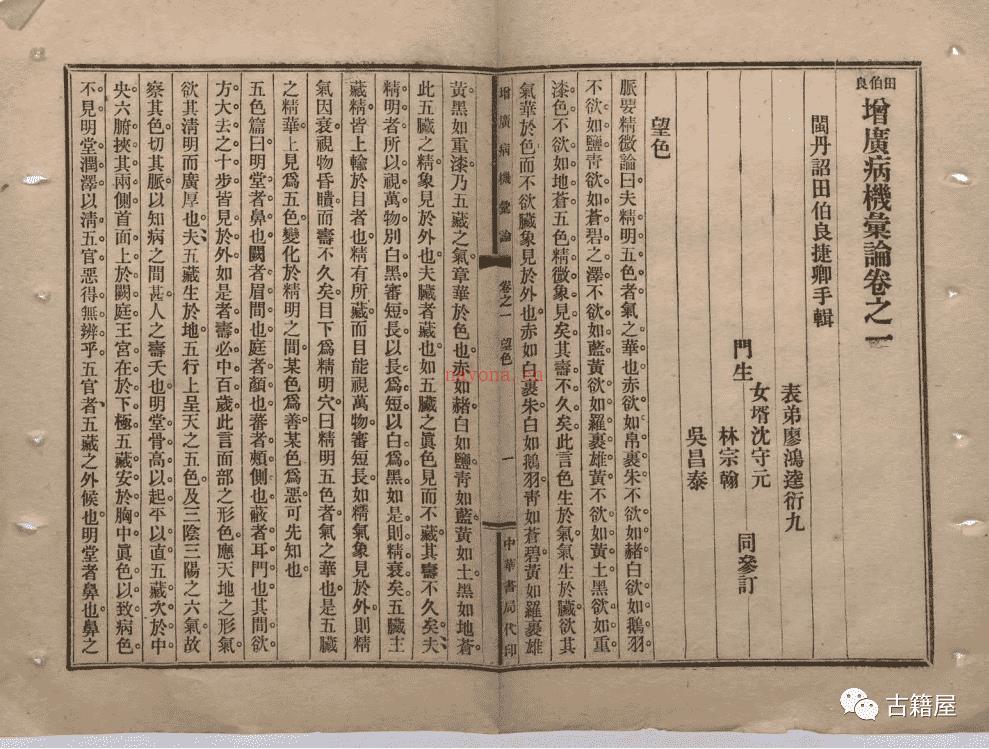 田伯良
增廣病機彙論卷之一
閩丹詔田伯良捷卿手輯
表弟廖鴻逵衍九
女壻沈守元
門生
林宗翰
吳昌泰
同參訂
望色
脈要精微論曰夫精明五色者氣之華也赤欲如帛裹朱不欲如赭白欲如鵝羽
不欲如鹽青欲如蒼碧之澤不欲如藍黃欲如羅裹雄黃不欲如黃土黑欲如重
漆色不欲如地蒼五色精微象見矣其壽不久矣此言色生於氣氣生於臟欲其
氣華於色而不欲臟象見於外也赤如白裹朱白如鵝羽青如蒼碧黃如羅裹雄
增廣病機彙論
卷之一
望色
一
中華書局代印
黃黑如重漆乃五藏之氣章華於色也赤如赭白如鹽青如藍黃如土黑如地蒼
此五臟之精象見於外也夫臟者藏也如五臟之眞色見而不藏其壽不久矣夫
精明者所以視萬物別白黑審短長以長爲短以白爲黑如是則精衰矣五臟主
藏精皆上輸於目者也精有所藏而目能視萬物審短長如精氣象見於外則精
氣因衰視物昏瞶而壽不久矣目下爲精明穴曰精明五色者氣之華也是五臟
之精華上見爲五色變化於精明之間某色爲善某色爲惡可先知也
五色篇曰明堂者鼻也闕者眉間也庭者顏也蕃者頰側也蔽者耳門也其間欲
方大去之十步皆見於外如是者壽必中百歲此言面部之形色應天地之形氣
欲其清明而廣厚也夫五藏生於地五行上呈天之五色及三陰三陽之六氣故
察其色切其脈以知病之間甚人之壽夭也明堂骨高以起平以直五藏次於中
央六腑挾其兩側首面上於闕庭王宮在於下極五藏安於胸中眞色以致病色
不見明堂潤澤以清五官惡得無辨乎五官者五藏之外候也明堂者鼻也鼻之
nayona.cn
古籍屋